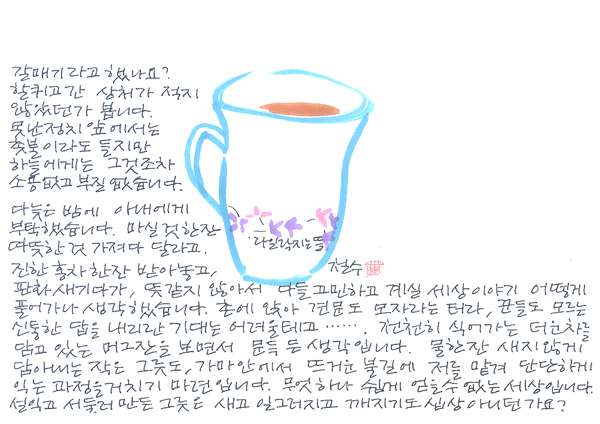 갈매기라고 했나요?
할퀴고 간 상처가 적지
않았던가 봅니다.
못난정치 앞에서는
촛불이라도 들지만
하늘에게는 그것조차
소용없고 부질 없습니다.
다늦은 밤에 아내에게
부탁했습니다. 마실 것 한잔
따뜻한 것 가져다 달라고.
진한 홍차 한잔 받아놓고,
철수
판화새기다가, 뜻같지 않아서 다들 고민하고 계실 세상이야기 어떻게
풀어가나 생각했습니다. 촌에 앉아 견문도 모자라는 터라, 끈들도 모르는
신통한 답을 내리란 기대는 어려울테고 ……. 천천히 식어가는 더운차를
담고 있는 머그잔을 보면서 문득 든 생각입니다. 물한잔 새지않게
담아내는 작은 그릇도, 가마안에서 뜨거운 불길에 저를 맡겨 단단하게
익는 과정을거치기 마련입니다. 무엇하나 쉽게 얻을수 없는 세상입니다.
설익고 서둘러 만든 그릇은 새고 일그러지고 깨지기도 십상 아니던가요?